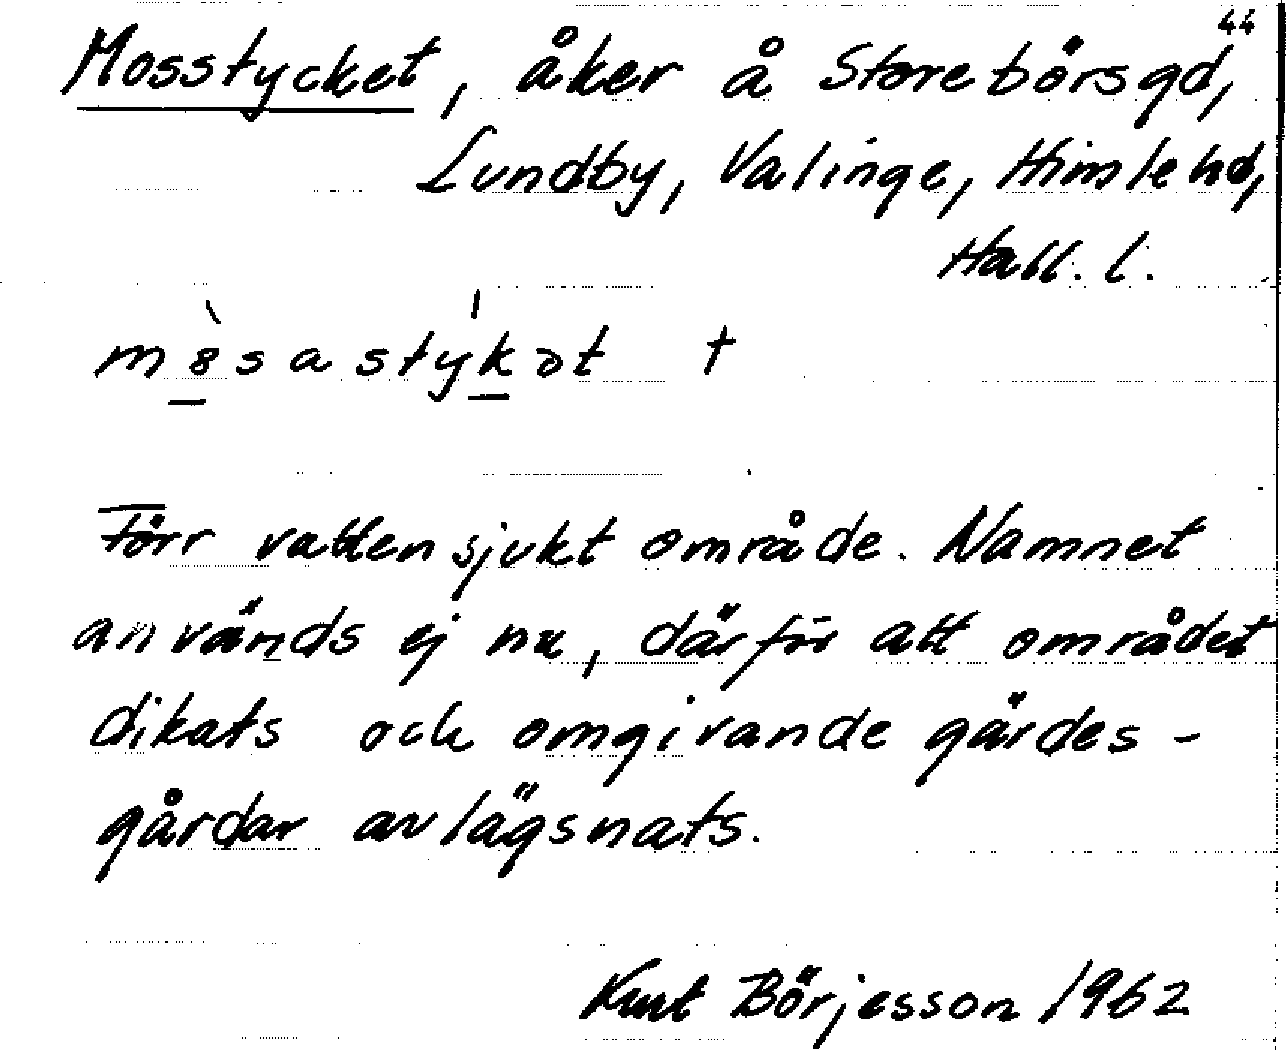 44
Mosstycket, åker å Storebörsgd,
Lundby, Valinge, Himle hd,
Hall. l.
m8̀sastýkət †
Förr vattensjukt område. Namnet
används ej nu, därför att området
dikats och omgivande gärdes-
gårdar avlägsnats.
Kurt Börjesson 1962